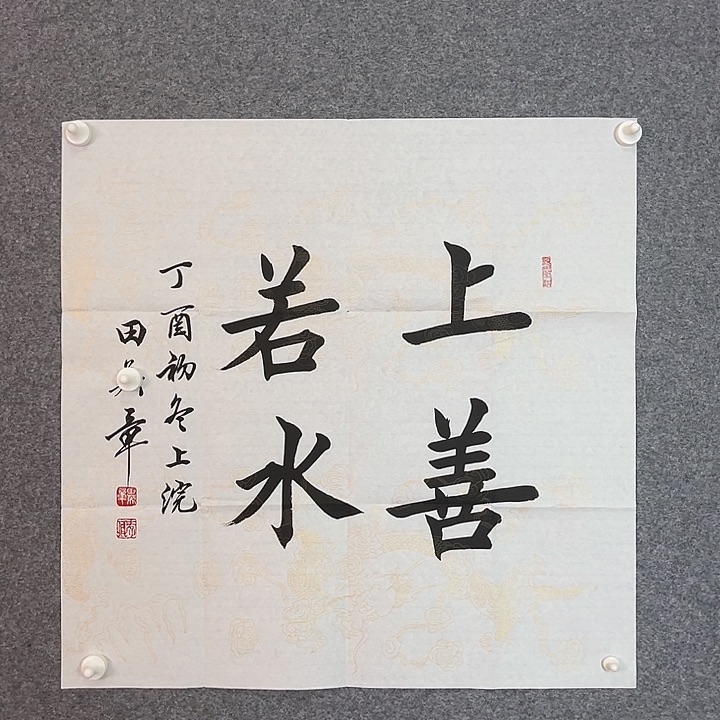 上善
若水
丁酉初冬上浣
田章